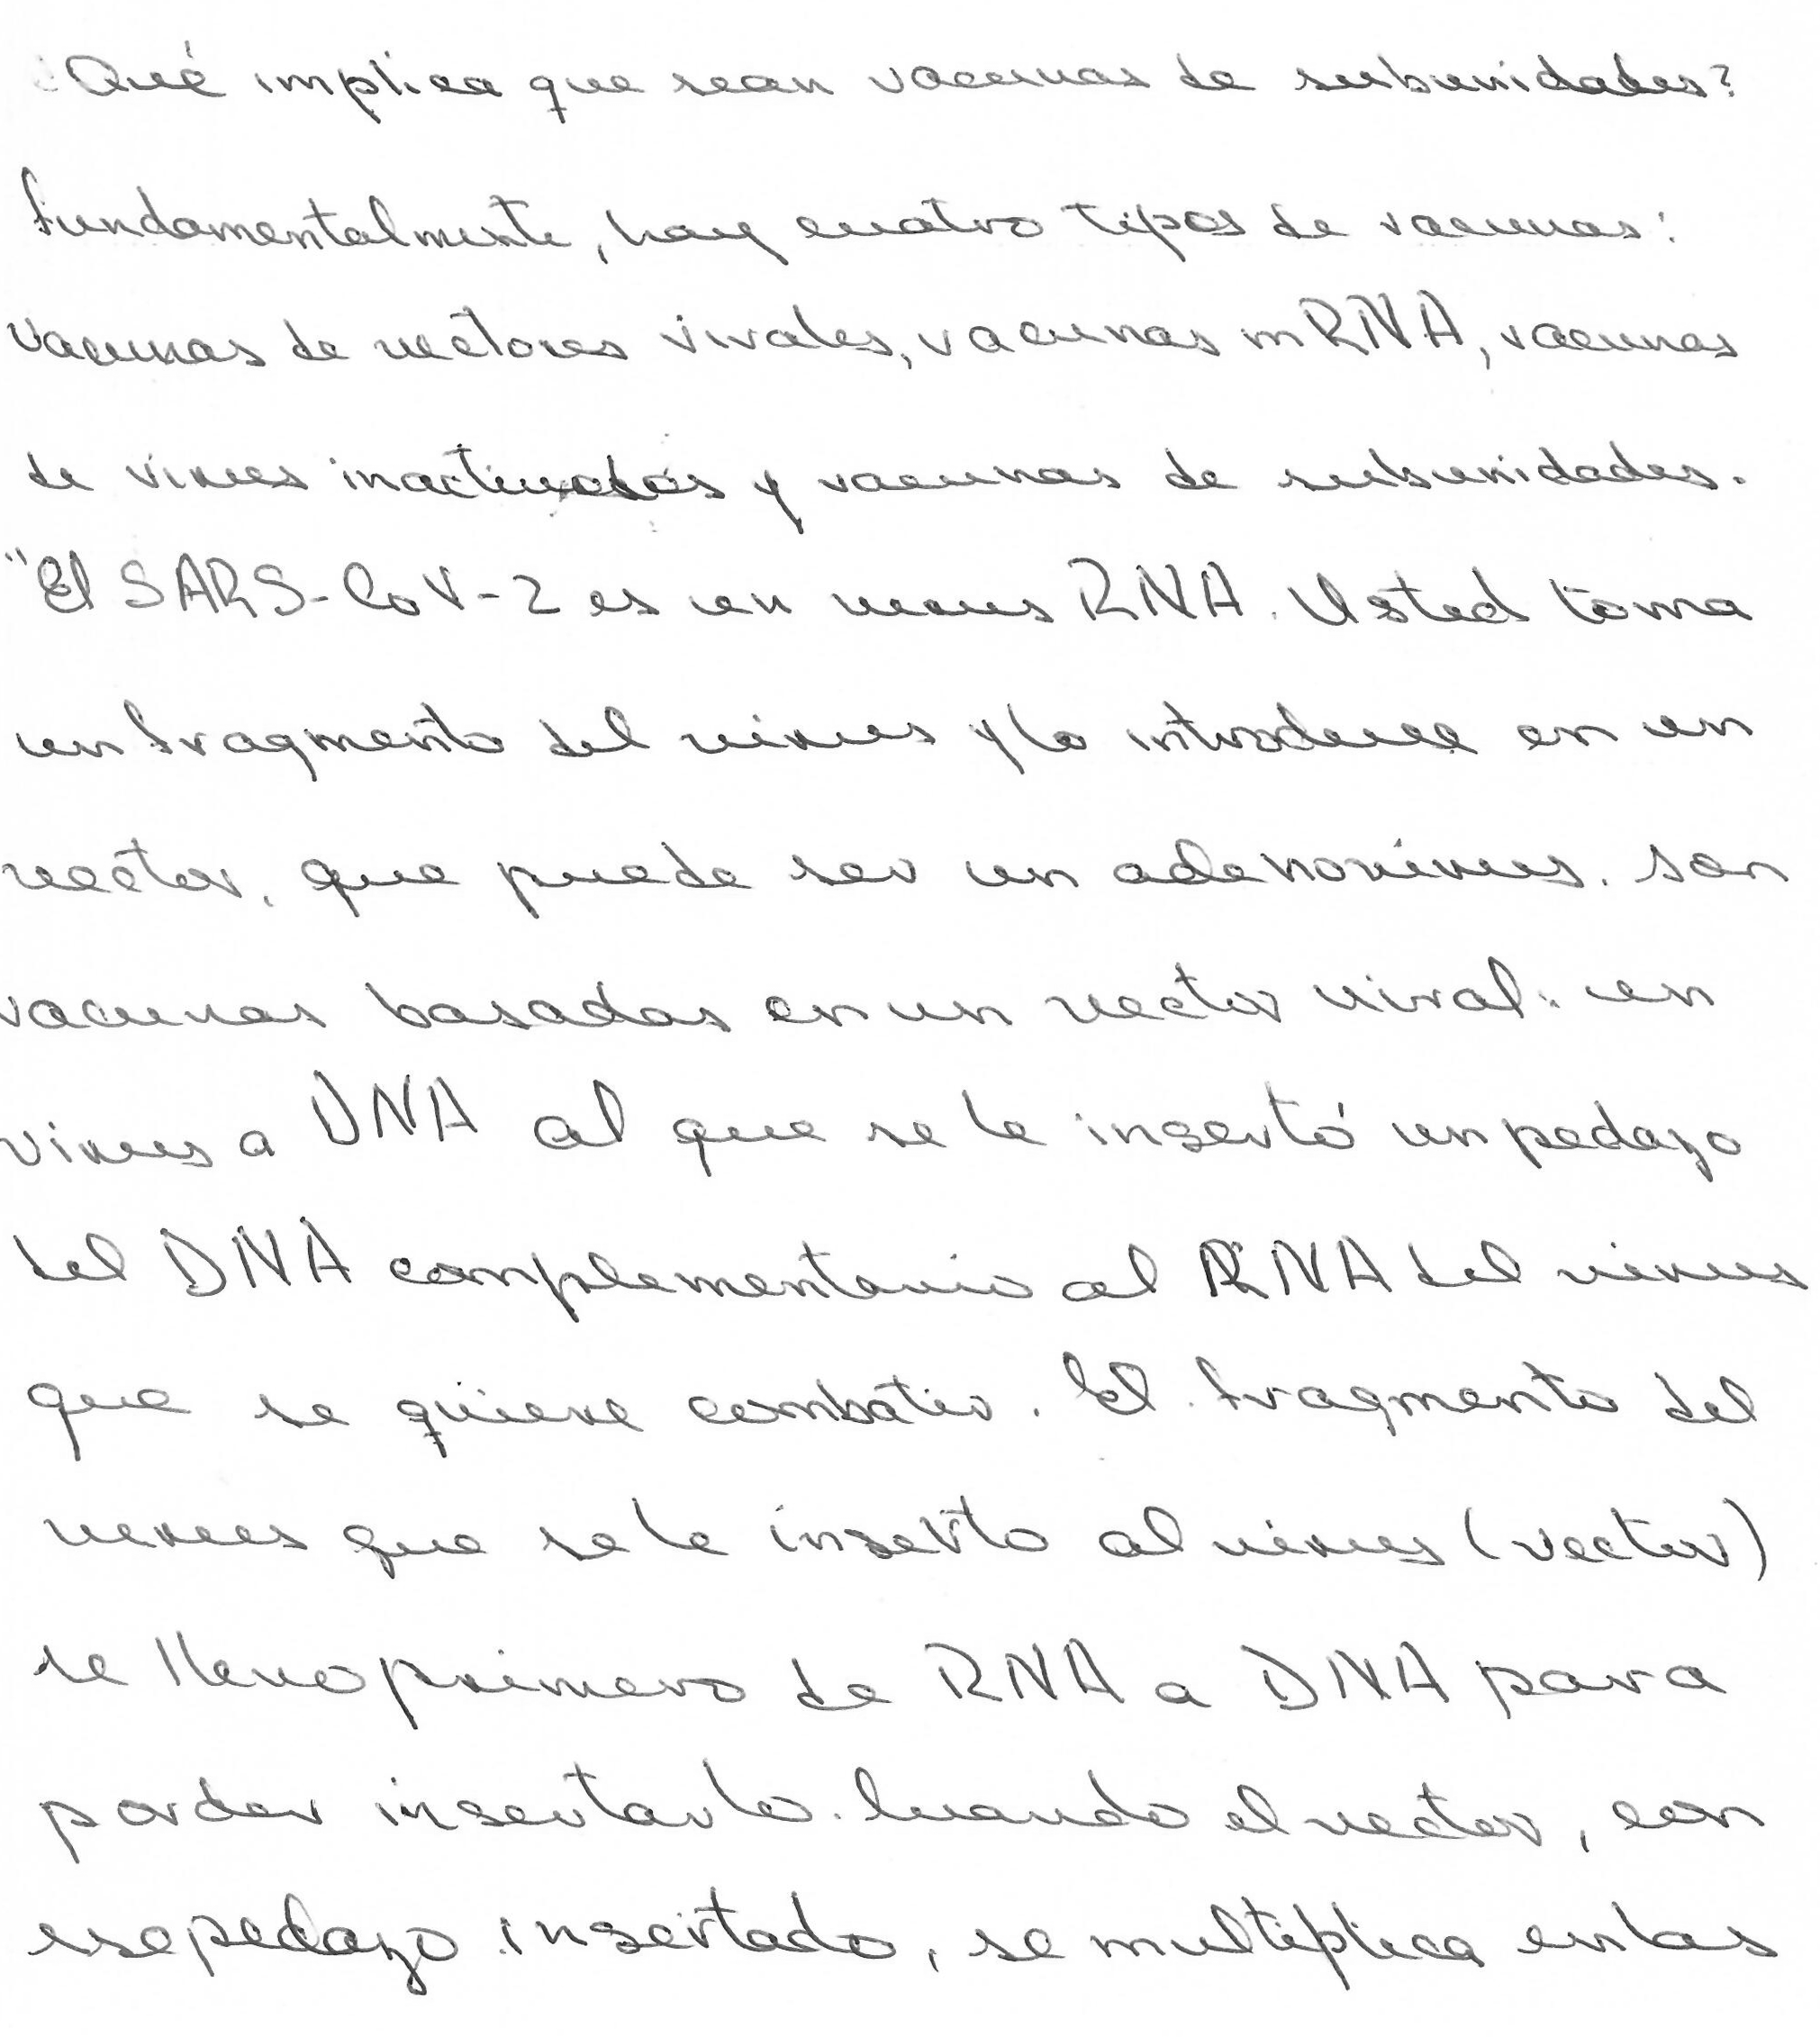 ¿Qué implica que sean vacunas de subunidades?
Fundamentalmente, hay cuatro tipos de vacunas:
vacunas de vectores virales, vacunas mRNA, vacunas
de virus inactivados y vacunas de subunidades.
"El SARS-CoV-2 es un virus RNA. Usted toma
un fragmento del virus y lo introduce en un
vector, que puede ser un adenovirus. Son
vacunas basadas en un vector viral: un
virus a DNA al que se le insertó un pedazo
del DNA complementario al RNA del virus
que se quiere combatir. El fragmento del
virus que se le inserto al virus (vector)
se llevo primero de RNA a DNA para
porder insertarlo. Cuando el vector, con
ese pedazo insertado, se multiplica en las